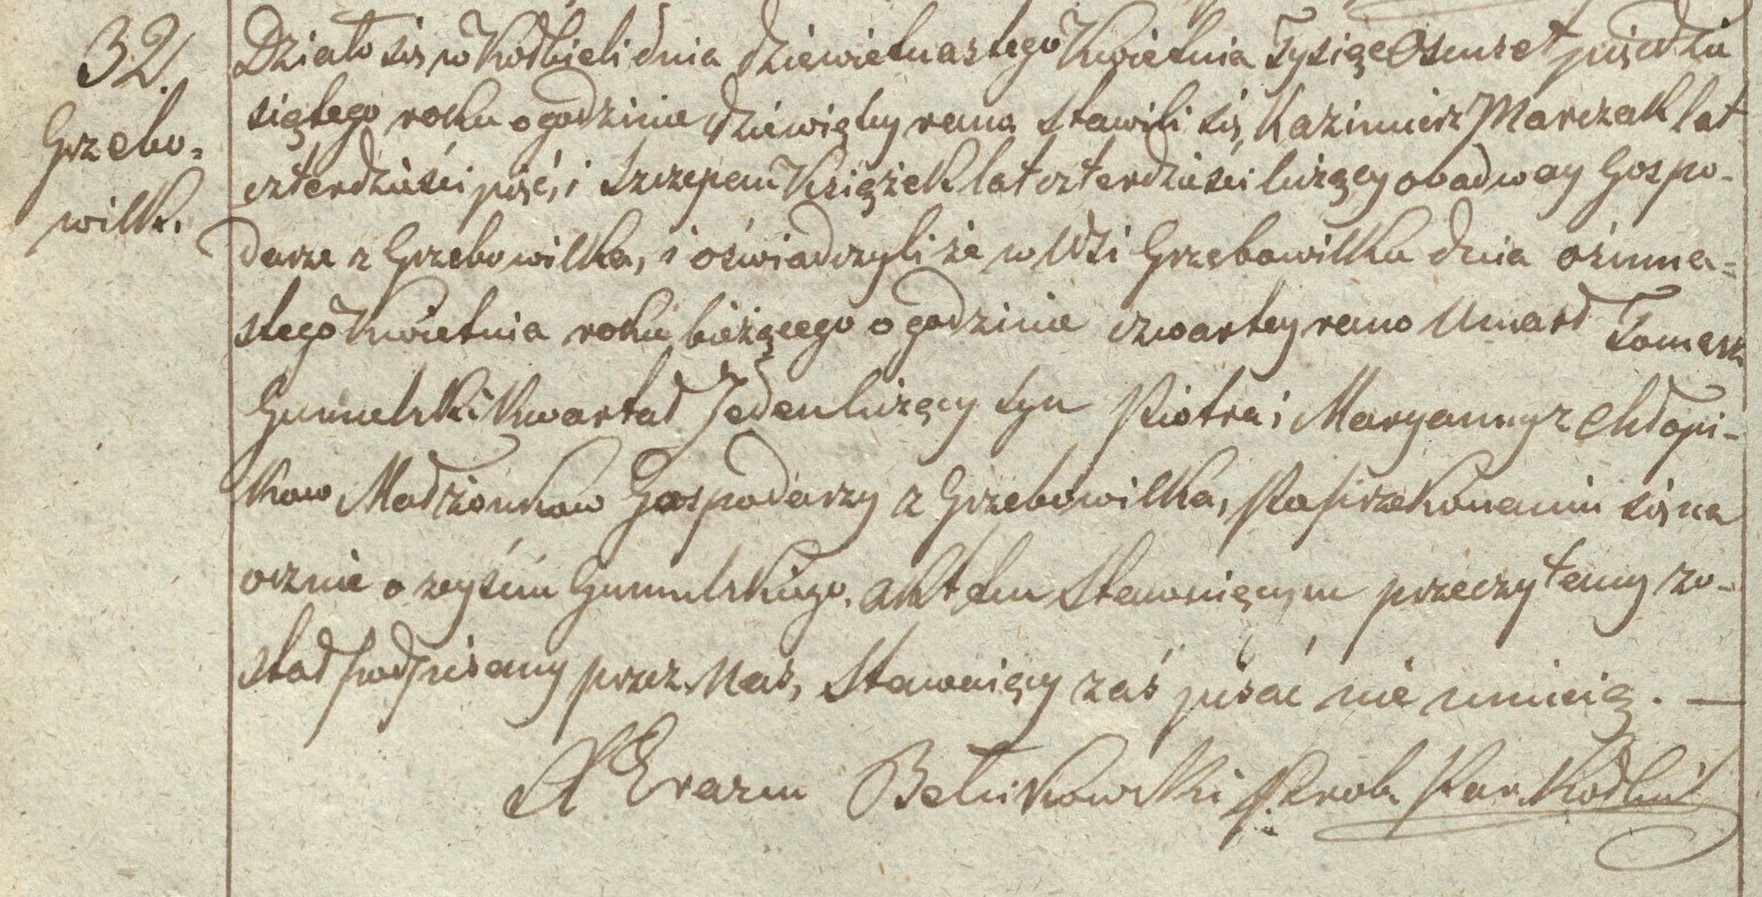 32.
Grzebo-
wilk.
Działo się w Kołbieli dnia dziewietnastego Kwietnia Tysiąc Osmset pięcdzie
siątego roku o godzinie dziewiątey rano stawili się, Kazimierz Marczak lat
czterdzieści pięć, i Szczepan Książek lat czterdzieści liczący obadway Gospo-
darze z Grzebowilka, i oświadczyli że w Wsi Grzebowilku dnia ośmna-
stego Kwietnia roku bieżącego o godzinie czwartey rano Umarł Tomasz
Gumulski Kwartał Jeden liczący syn Piotra i Maryanny z Chłopi-
kow Małżonkow Gospodarzy z Grzebowilka, Po przekonaniu się na
ocznie o zeyściu Gumulskiego. Akt ten Stawaiącym przeczytany zo-
stał podpisany przez Nas, Stawaiący zaś pisać nie umieią. —
X Erazm Betikowski Prob. Par. Kołbiel